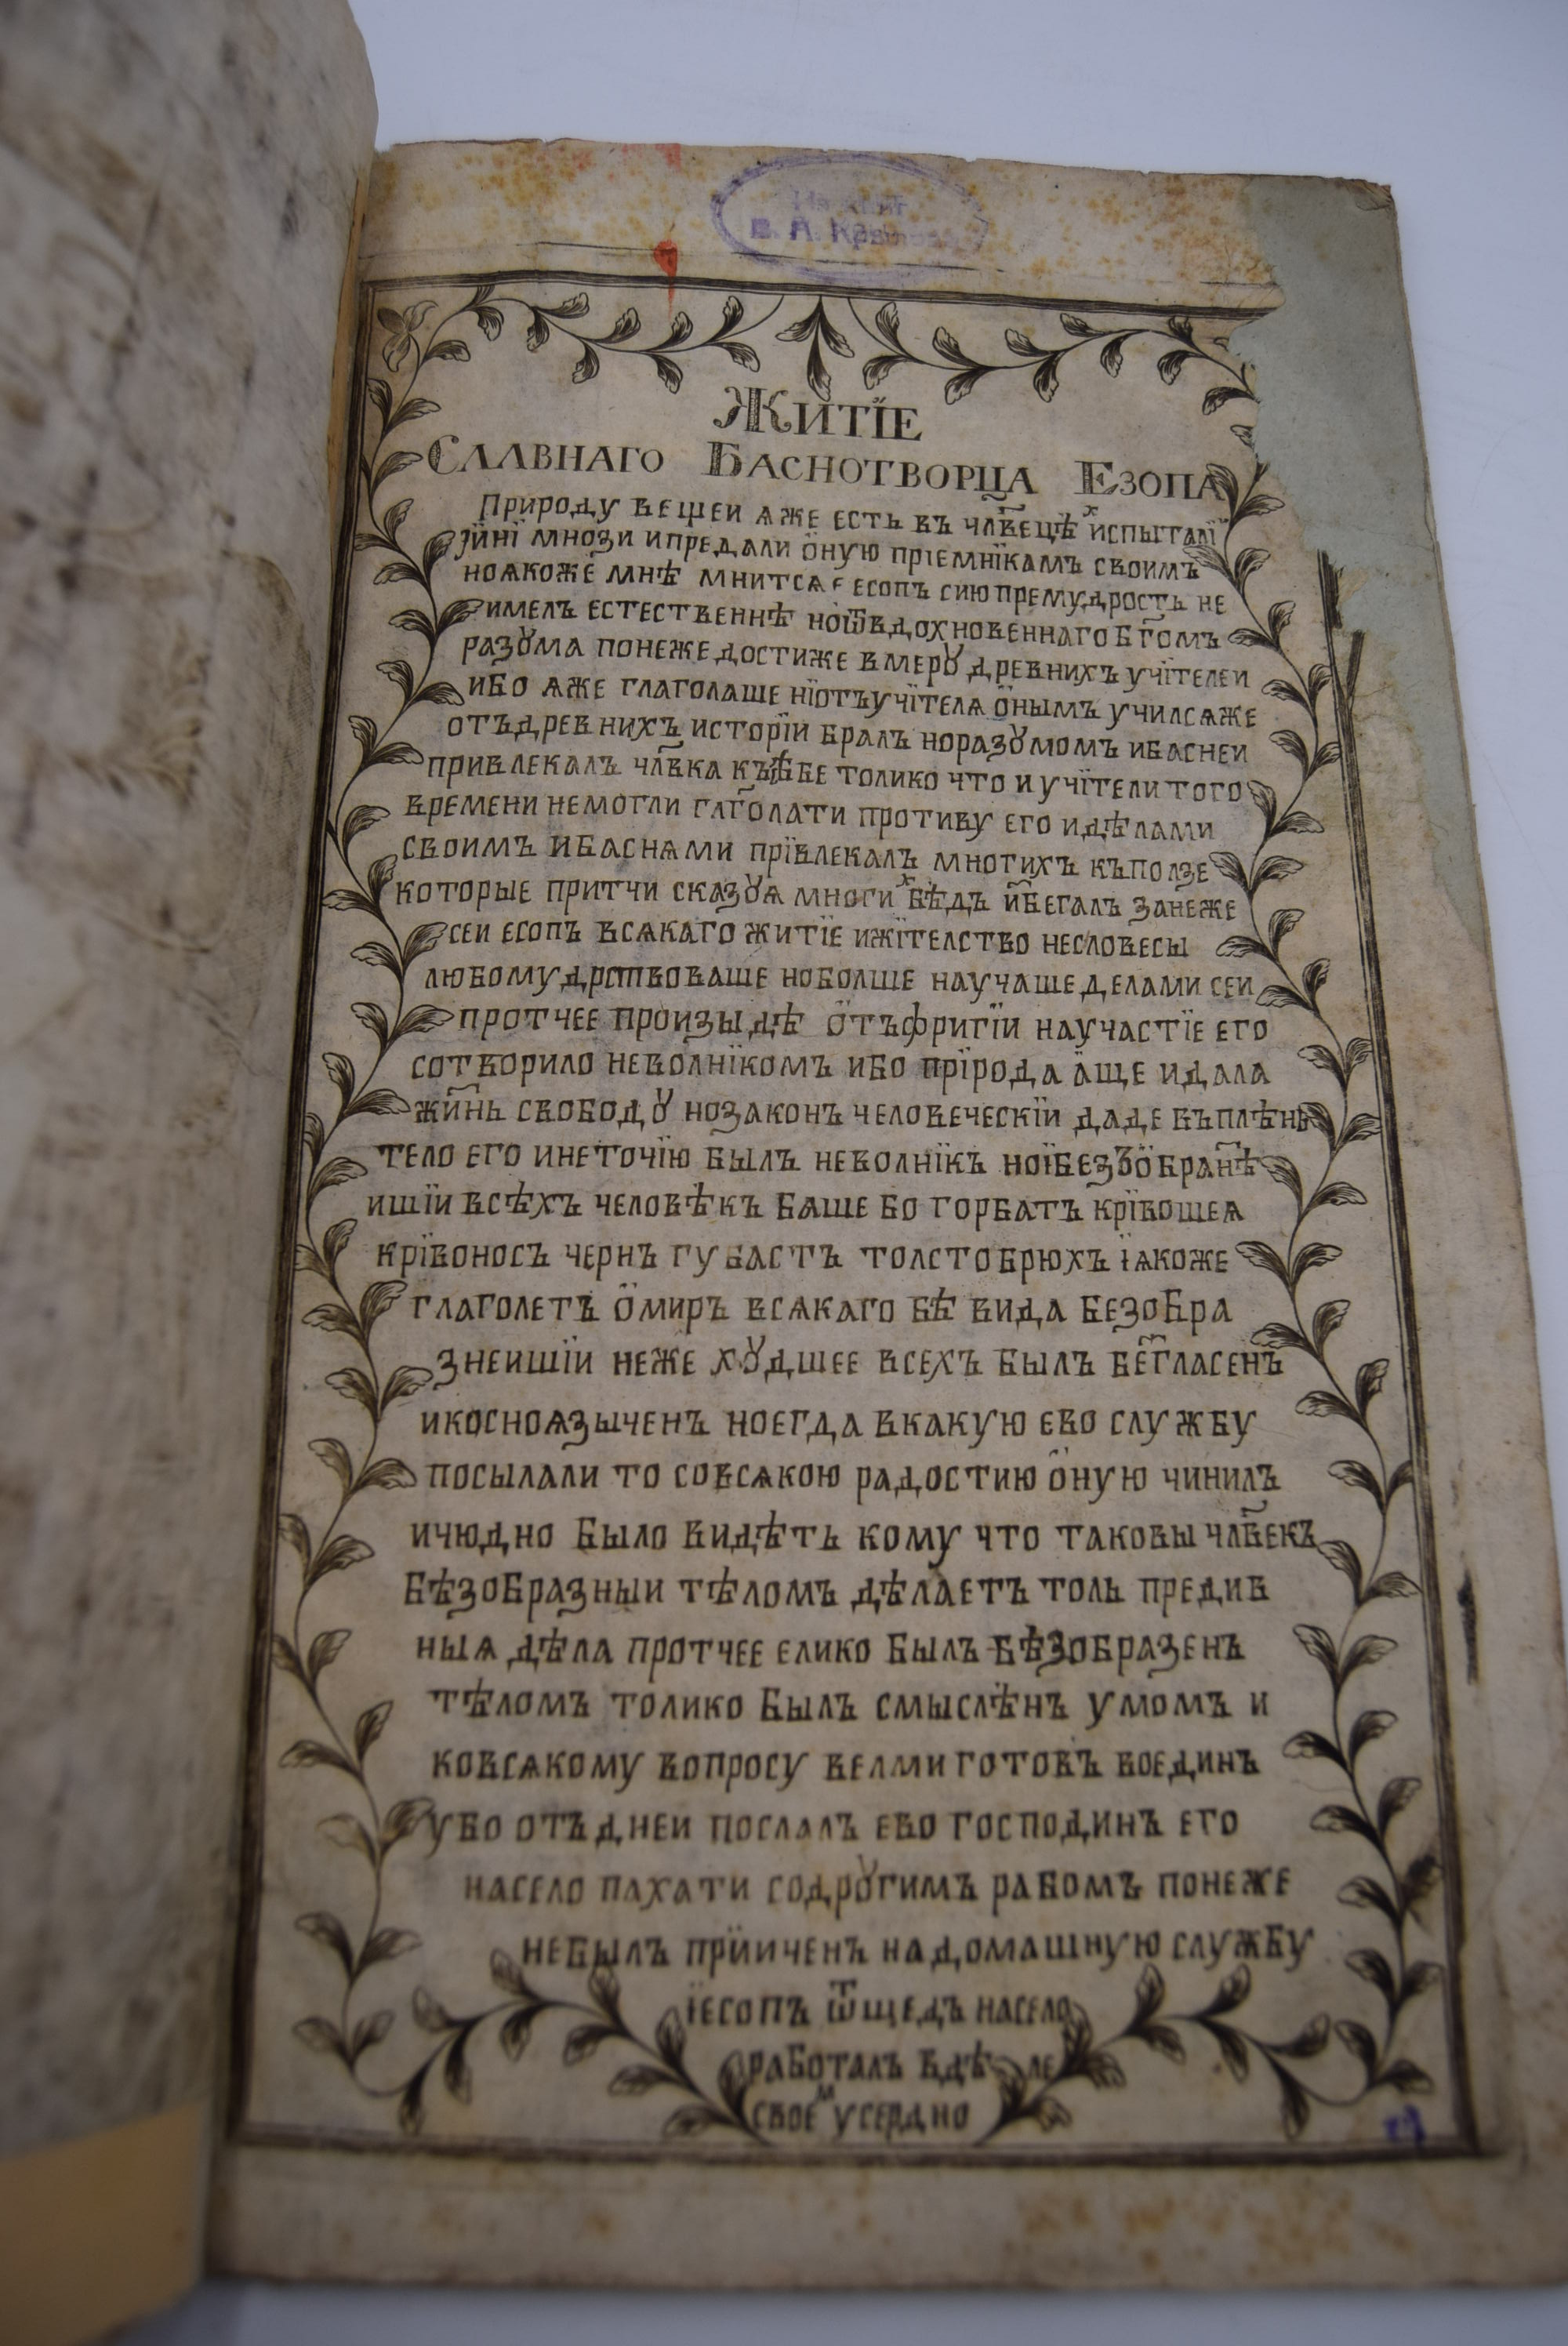 Житїе
Славнаго Баснотворца Езопа
Природу вещеи яже есть въ чл҃вецѣх испытталї
їинї мнози ипредали ӧную прїемнїкамъ своимъ
ноякоже мнѣ мнится есопъ сию премудрость не
имелъ естественнѣ ноѿвдохновеннаго бг҃омъ
разꙋма понеже достиже вмерꙋ древнихъ учїтелеи
ибо яже глаголаше нїотъучїтеля ӧнымъ училсяже
отъдревнихъ исторїи бралъ норазꙋмомъ ибаснеи
привлекалъ чл҃вка къ себе толико что и учїтели того
времени немогли глг҃олати противу его идѣлами
своимъ ибаснями прївлекалъ многихъ къползе
которые притчи сказꙋя многих бѣдъ избегалъ занеже
сеи есопъ всякаго житїе ижїтелство несловесы
любомудрствоваше ноболше научаше делами сеи
протчее произыдѣ ӧтъфригїи научастїе его
сотворило неволнїкомъ ибо прїрода аще идала
жизнь свободꙋ нозаконъ человеческїи даде въплѣнъ
тело его инеточїю былъ неволнїкъ ноїбезъӧбранѣ
ишїи всѣхъ человѣкъ бяше бо горбатъ крївошея
крївоносъ чернъ губастъ толстобрюхъ їякоже
глаголетъ ӧмиръ всякаго бѣ вида безобра
знеишїи неже хꙋдшее всехъ былъ безгласенъ
икосноязыченъ ноегда вкакую ево службу
посылали то совсякою радостию ӧную чинилъ
ичюдно было видѣть кому что таковы чл҃векъ
бѣзобразныи тѣломъ дѣлаетъ толь предив
ныя дѣла протчее елико былъ бѣзобразенъ
тѣломъ толико былъ смыслѣнъ умомъ и
ковсякому вопросу велми готовъ воединъ
убо отъ днеи послалъ ево господинъ его
насело пахати содрꙋгимъ рабомъ понеже
небылъ прїиченъ надомашную службу
їесопъ ѿшедъ насело
работалъ вдѣле
своем усердно